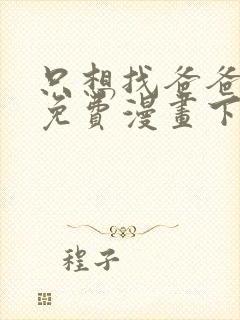 只想找爸爸
免費漫畫下
程子